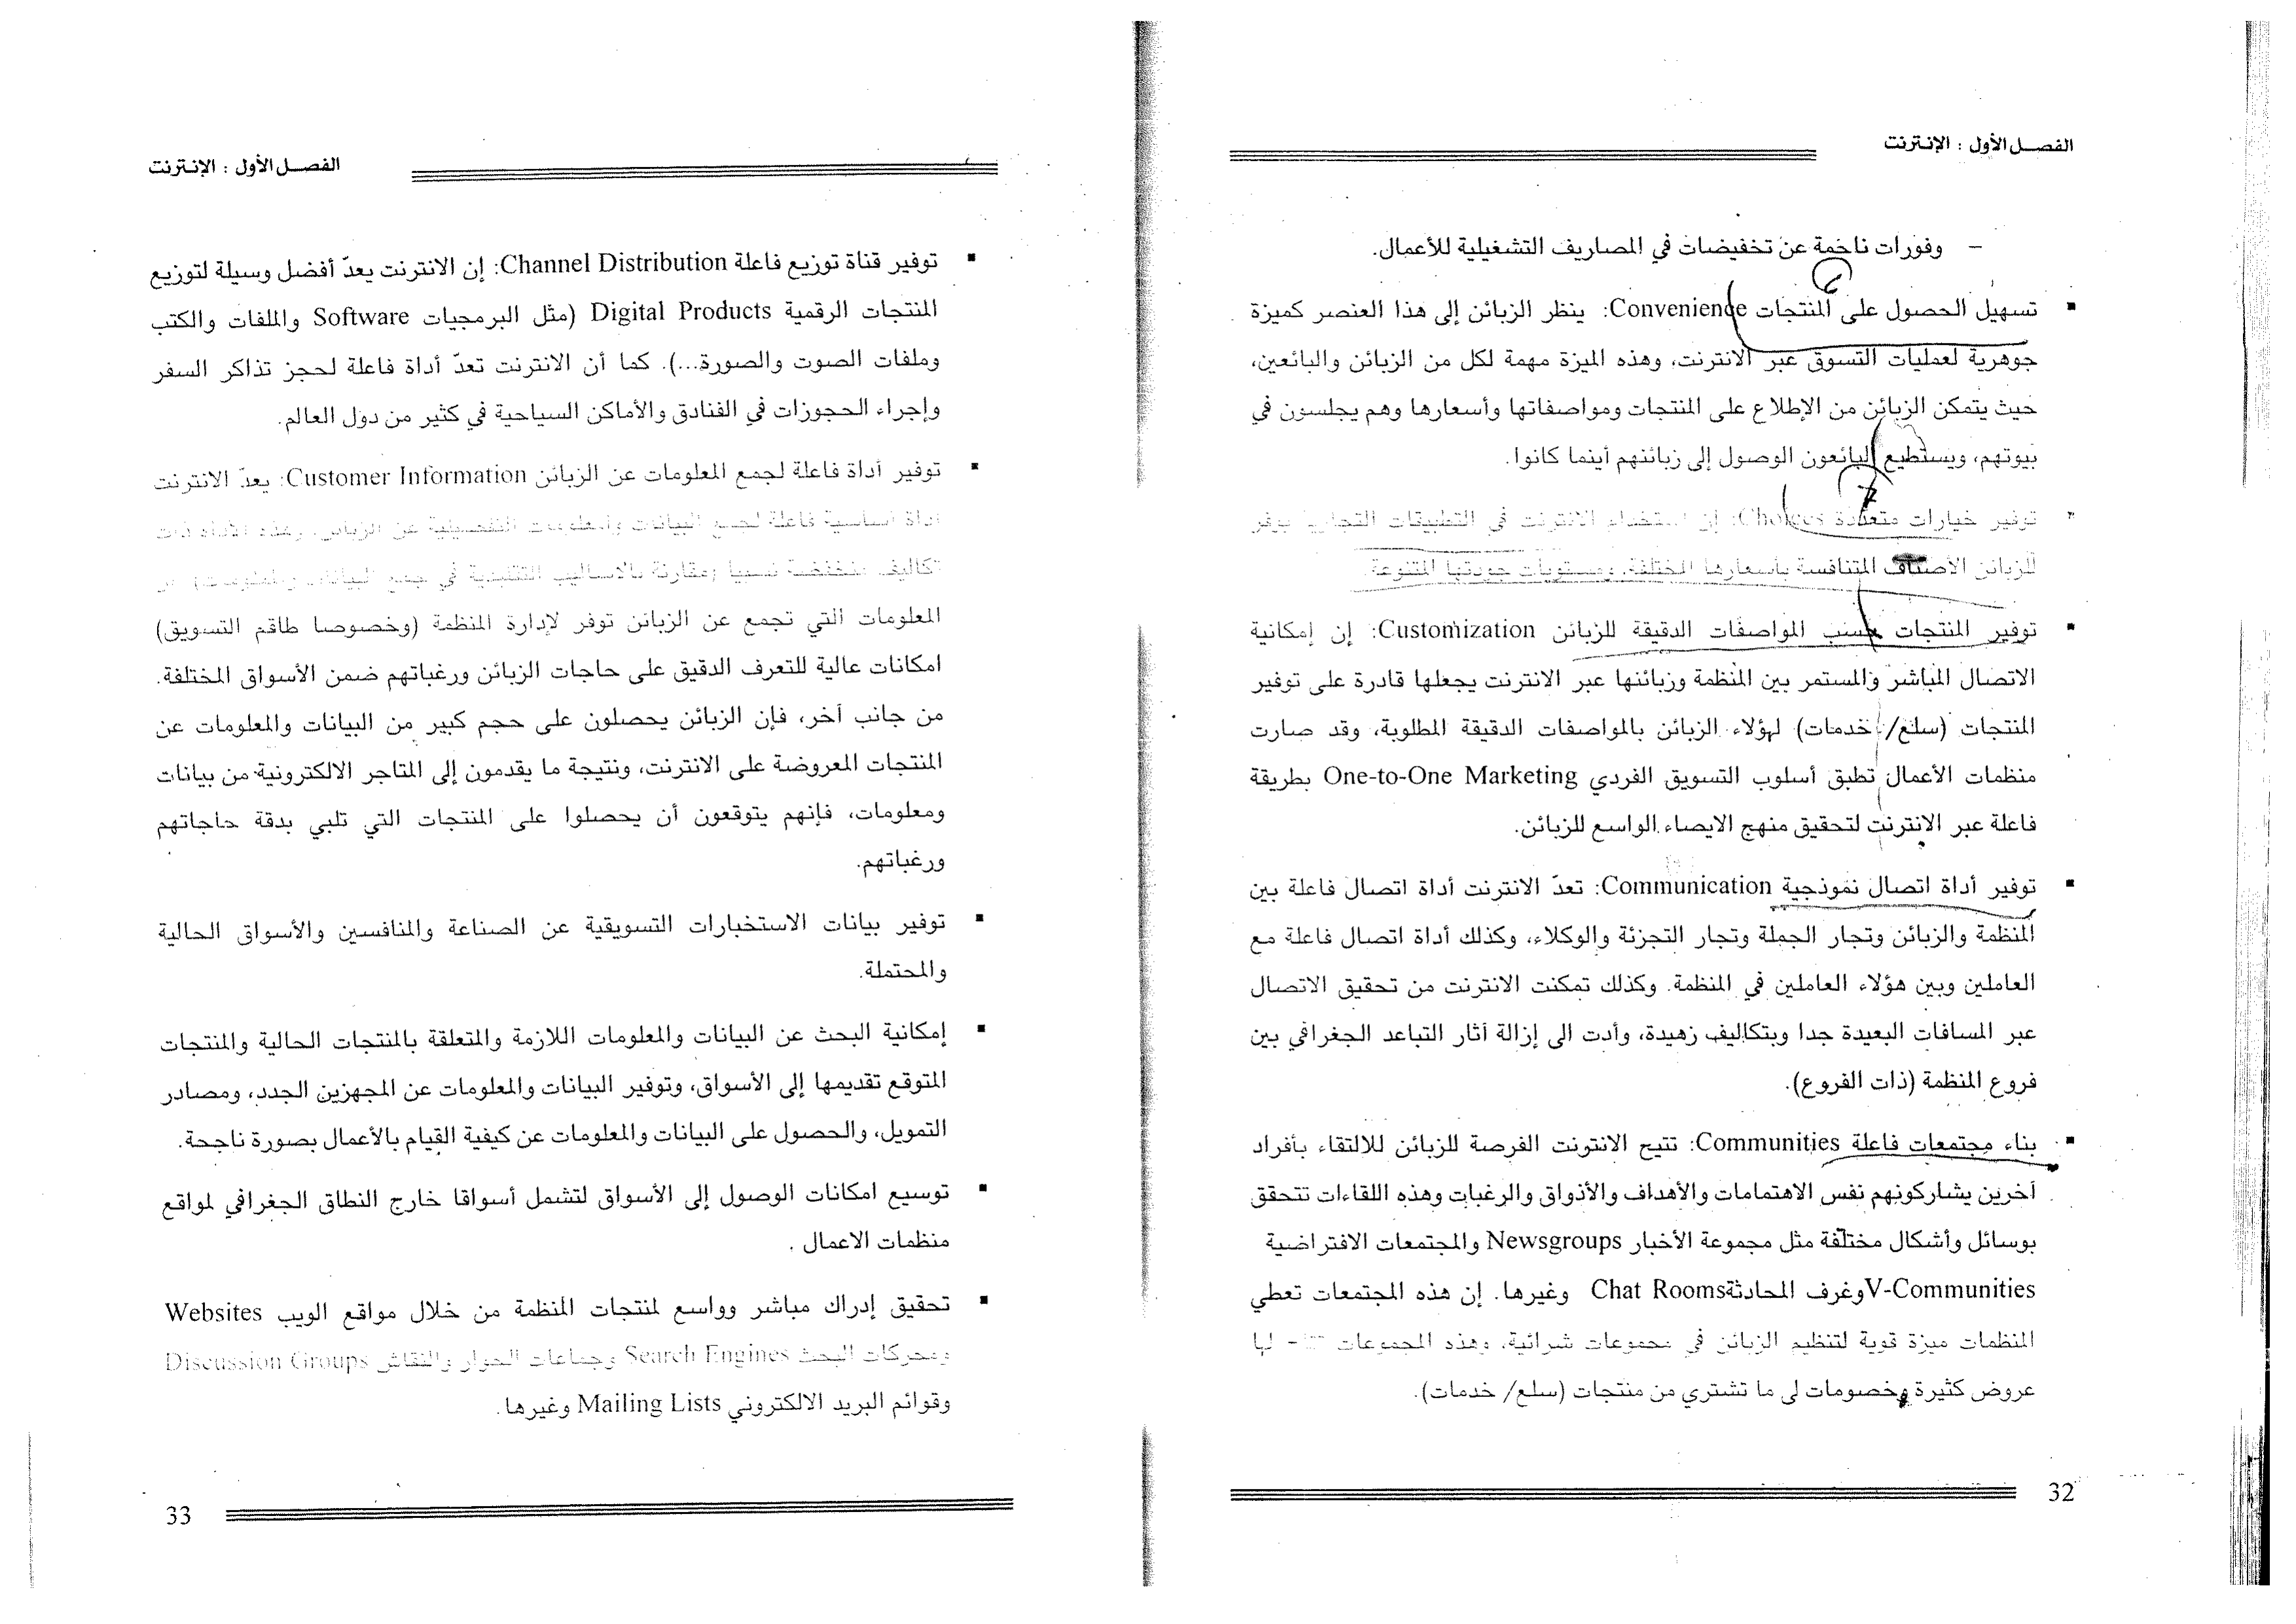 الفصل الأول : الإنترنت
– وفورات ناجمة عن تخفيضات في المصاريف التشغيلية للأعمال.
▪ تسهيل الحصول على المنتجات Convenience: ينظر الزبائن إلى هذا العنصر كميزة
جوهرية لعمليات التسوق عبر الانترنت، وهذه الميزة مهمة لكل من الزبائن والبائعين،
حيث يتمكن الزبائن من الإطلاع على المنتجات ومواصفاتها وأسعارها وهم يجلسون في
بيوتهم، ويستطيع البائعون الوصول إلى زبائنهم أينما كانوا.
7
▪ توفير خيارات متعددة Choices: إن استخدام الانترنت في التطبيقات التجارية يوفر
للزبائن الأصناف المتنافسة بأسعارها المختلفة، ومستويات جودتها المتنوعة.
▪ توفير المنتجات حسب المواصفات الدقيقة للزبائن Customization: إن إمكانية
الاتصال المباشر والمستمر بين المنظمة وزبائنها عبر الانترنت يجعلها قادرة على توفير
المنتجات (سلع/ خدمات) لهؤلاء الزبائن بالمواصفات الدقيقة المطلوبة، وقد صارت
منظمات الأعمال تطبق أسلوب التسويق الفردي One-to-One Marketing بطريقة
فاعلة عبر الانترنت لتحقيق منهج الايصاء الواسع للزبائن.
▪ توفير أداة اتصال نموذجية Communication: تعدّ الانترنت أداة اتصال فاعلة بين
المنظمة والزبائن وتجار الجملة وتجار التجزئة والوكلاء، وكذلك أداة اتصال فاعلة مع
العاملين وبين هؤلاء العاملين في المنظمة. وكذلك تمكنت الانترنت من تحقيق الاتصال
عبر المسافات البعيدة جدا وبتكاليف زهيدة، وأدت الى إزالة آثار التباعد الجغرافي بين
فروع المنظمة (ذات الفروع).
▪ بناء مجتمعات فاعلة Communities: تتيح الانترنت الفرصة للزبائن للالتقاء بأفراد
آخرين يشاركونهم نفس الاهتمامات والأهداف والأذواق والرغبات وهذه اللقاءات تتحقق
بوسائل وأشكال مختلفة مثل مجموعة الأخبار Newsgroups والمجتمعات الافتراضية
V-Communities وغرف المحادثة Chat Rooms وغيرها. إن هذه المجتمعات تعطي
المنظمات ميزة قوية لتنظيم الزبائن في مجموعات شرائية، وهذه المجموعات لها
عروض كثيرة وخصومات لى ما تشتري من منتجات (سلع/ خدمات).
32
الفصل الأول : الإنترنت
▪ توفير قناة توزيع فاعلة Channel Distribution: إن الانترنت يعدّ أفضل وسيلة لتوزيع
المنتجات الرقمية Digital Products (مثل البرمجيات Software والملفات والكتب
وملفات الصوت والصورة...). كما أن الانترنت تعدّ أداة فاعلة لحجز تذاكر السفر
وإجراء الحجوزات في الفنادق والأماكن السياحية في كثير من دول العالم.
▪ توفير أداة فاعلة لجمع المعلومات عن الزبائن Customer Information: يعدّ الانترنت
أداة أساسية فاعلة لجمع البيانات والمعلومات التفصيلية عن الزبائن، وهذه الأداة ذات
تكاليف منخفضة نسبيا (مقارنة بالأساليب التقليدية في جمع البيانات والمعلومات)
المعلومات التي تجمع عن الزبائن توفر لإدارة المنظمة (وخصوصا طاقم التسويق)
امكانات عالية للتعرف الدقيق على حاجات الزبائن ورغباتهم ضمن الأسواق المختلفة.
من جانب آخر، فإن الزبائن يحصلون على حجم كبير من البيانات والمعلومات عن
المنتجات المعروضة على الانترنت، ونتيجة ما يقدمون إلى المتاجر الالكترونية من بيانات
ومعلومات، فإنهم يتوقعون أن يحصلوا على المنتجات التي تلبي بدقة حاجاتهم
ورغباتهم.
▪ توفير بيانات الاستخبارات التسويقية عن الصناعة والمنافسين والأسواق الحالية
والمحتملة.
▪ إمكانية البحث عن البيانات والمعلومات اللازمة والمتعلقة بالمنتجات الحالية والمنتجات
المتوقع تقديمها إلى الأسواق، وتوفير البيانات والمعلومات عن المجهزين الجدد، ومصادر
التمويل، والحصول على البيانات والمعلومات عن كيفية القيام بالأعمال بصورة ناجحة.
▪ توسيع امكانات الوصول إلى الأسواق لتشمل أسواقا خارج النطاق الجغرافي لمواقع
منظمات الاعمال .
▪ تحقيق إدراك مباشر وواسع لمنتجات المنظمة من خلال مواقع الويب Websites
ومحركات البحث Search Engines وجماعات الحوار والنقاش Discussion Groups
وقوائم البريد الالكتروني Mailing Lists وغيرها.
33